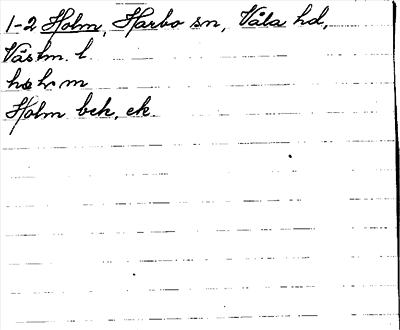 1-2 Holm, Harbo sn, Våla hd,
Västm. l.
ho hr m
Holm bch, ek.